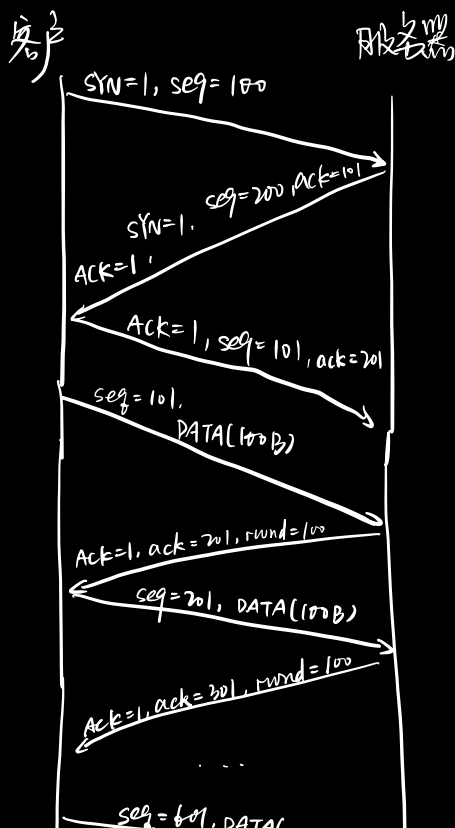 客户
服务器
SYN=1, seq=100
SYN=1, seq=200, ack=101
ACK=1,
ACK=1, seq=101, ack=201
seq=101,
DATA(100B)
ACK=1, ack=201, rwnd=100
seq=201, DATA(100B)
ACK=1, ack=301, rwnd=100
...
seq=601, DATA(